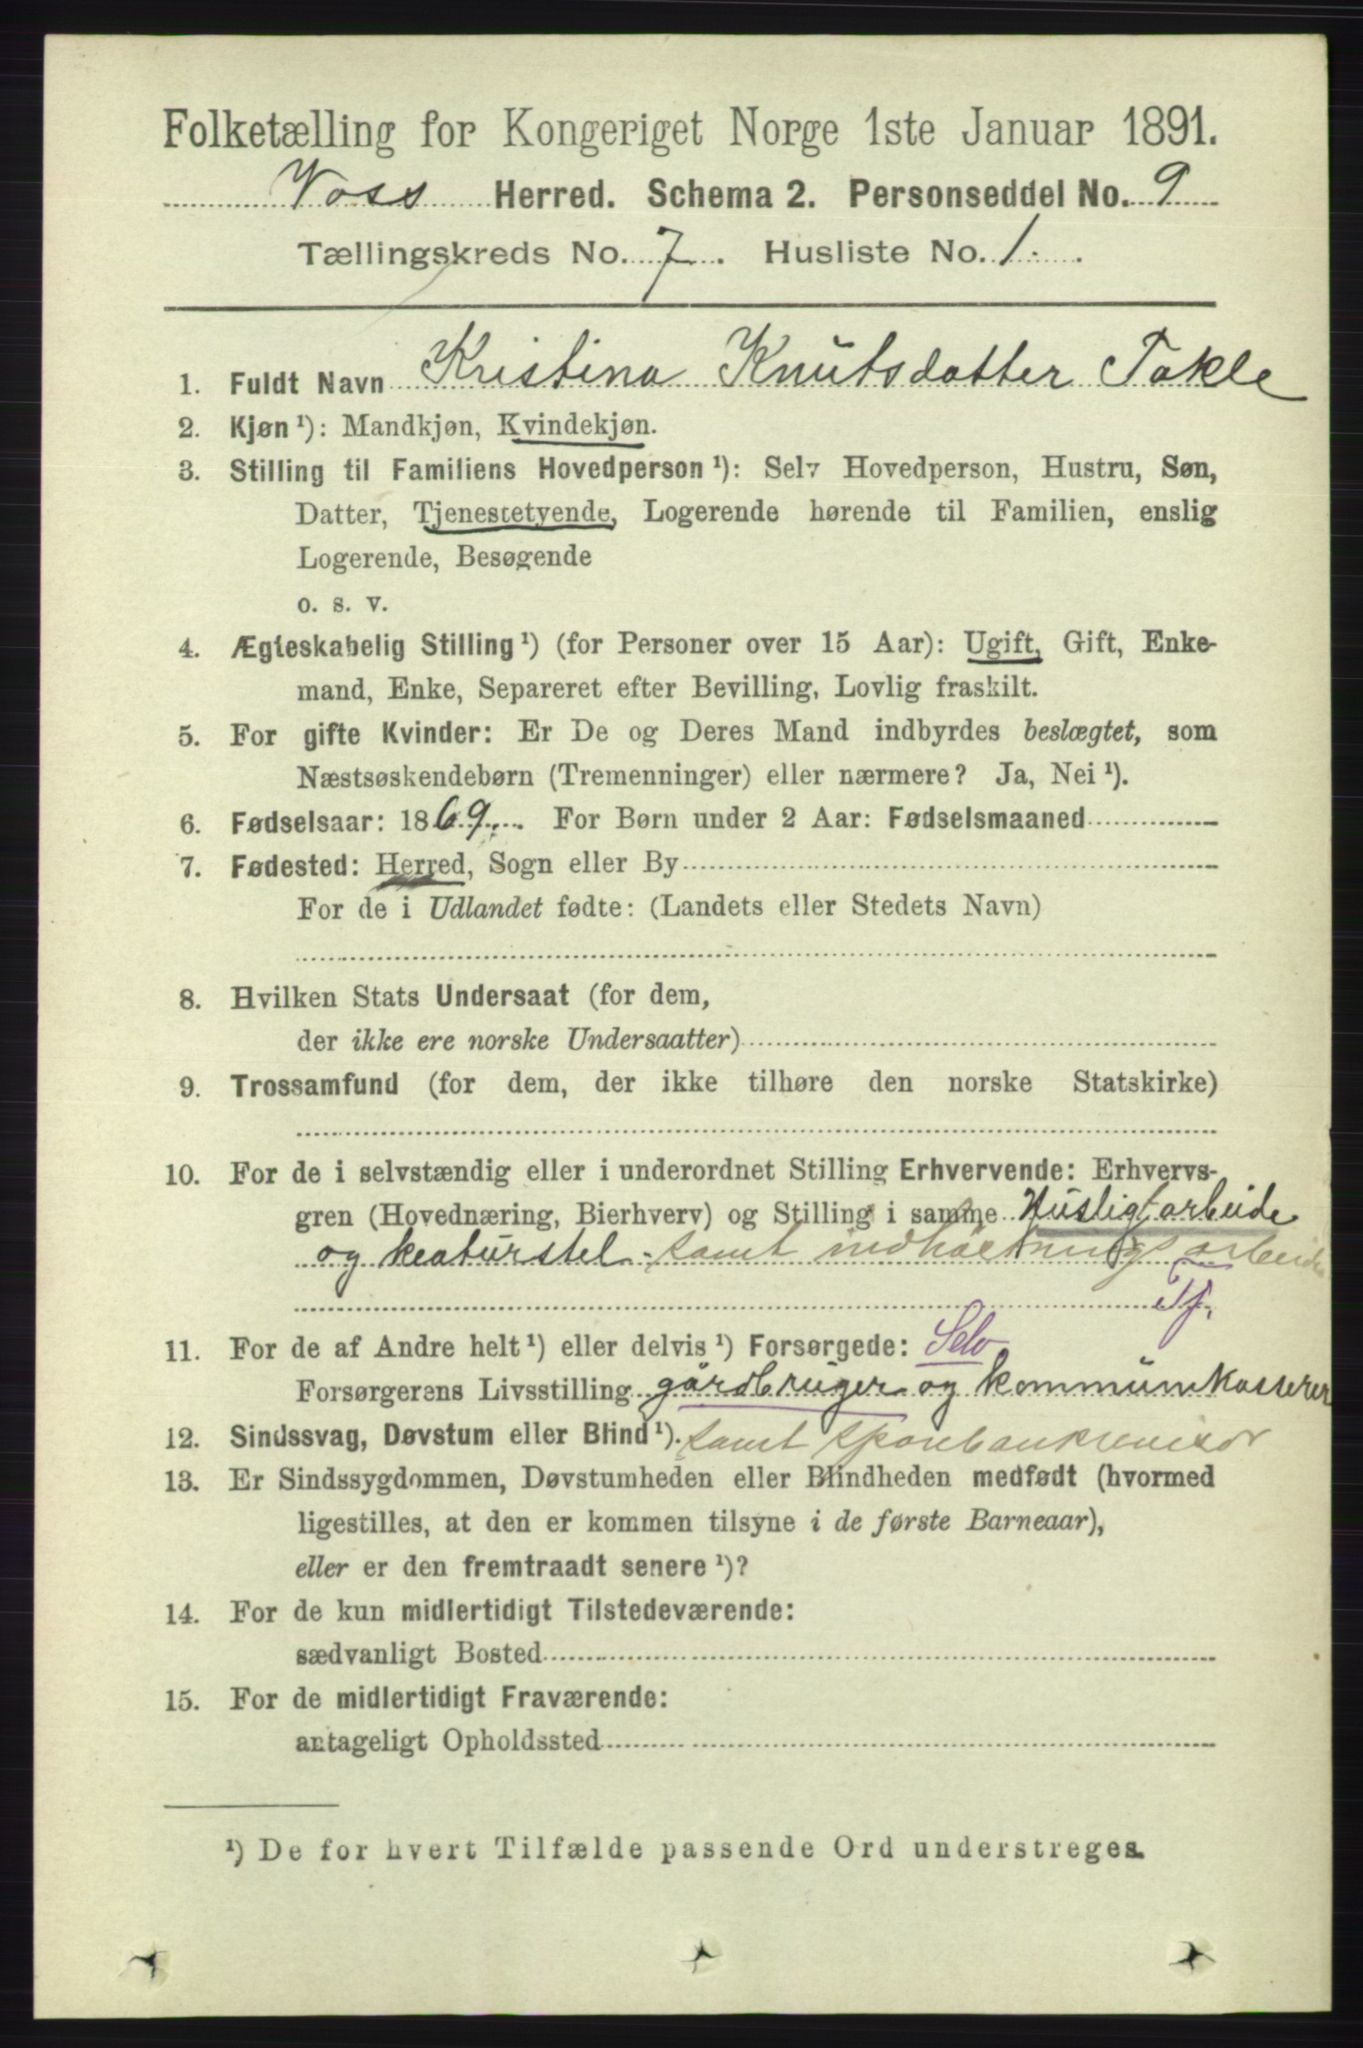 Folketælling for Kongeriget Norge 1ste Januar 1891.
Voss Herred. Schema 2. Personseddel No. 9
Tællingskreds No. 7. Husliste No. 1.
1. Fuldt Navn Kristina Knutsdatter Takle
2. Kjøn ¹): Mandkjøn, Kvindekjøn.
3. Stilling til Familiens Hovedperson ¹): Selv Hovedperson, Hustru, Søn,
Datter, Tjenestetyende, Logerende hørende til Familien, enslig
Logerende, Besøgende
o. s. v.
4. Ægteskabelig Stilling ¹) (for Personer over 15 Aar): Ugift, Gift, Enke-
mand, Enke, Separeret efter Bevilling, Lovlig fraskilt.
5. For gifte Kvinder: Er De og Deres Mand indbyrdes beslægtet, som
Næstsøskendebørn (Tremenninger) eller nærmere? Ja, Nei ¹).
6. Fødselsaar: 1869. For Børn under 2 Aar: Fødselsmaaned
7. Fødested: Herred, Sogn eller By
For de i Udlandet fødte: (Landets eller Stedets Navn)
8. Hvilken Stats Undersaat (for dem,
der ikke ere norske Undersaatter)
9. Trossamfund (for dem, der ikke tilhøre den norske Statskirke)
10. For de i selvstændig eller i underordnet Stilling Erhvervende: Erhvervs-
gren (Hovednæring, Bierhverv) og Stilling i samme Husligt arbeide
og kreaturstel - samt indhøstningsarbeide
Tj.
11. For de af Andre helt ¹) eller delvis ¹) Forsørgede: Selv
Forsørgerens Livsstilling gårdbruger og kommunekasserer
12. Sindssvag, Døvstum eller Blind ¹). samt sparebankrevisor
13. Er Sindssygdommen, Døvstumheden eller Blindheden medfødt (hvormed
ligestilles, at den er kommen tilsyne i de første Barneaar),
eller er den fremtraadt senere ¹)?
14. For de kun midlertidigt Tilstedeværende:
sædvanligt Bosted
15. For de midlertidigt Fraværende:
antageligt Opholdssted
¹) De for hvert Tilfælde passende Ord understreges.